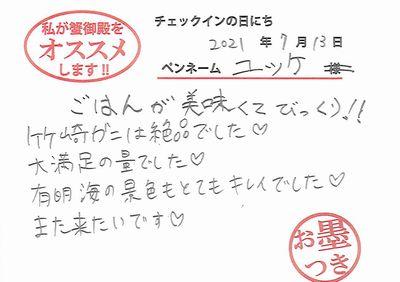 私が蟹御殿を
オススメ
します!!
チェックインの日にち
2021 年 7 月 13 日
ペンネーム ユッケ 様
ごはんが美味くてびっくり!!
竹崎ガニは絶品でした♡
大満足の量でした♡
有明海の景色もとてもキレイでした♡
また来たいです♡
お墨
つき